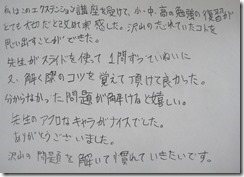 私はこのエクステンション講座を受けて、小・中・高の勉強の復習が
とても大切だと改めて実感した。沢山の忘れていたコトを
思い出すことができた。
先生がスライドを使って1問ずつていねいに
又、解く際のコツを覚えて頂けて良かった。
分からなかった問題が解けると嬉しい。
先生のアフロなキャラがナイスでした。
ありがとうございました。
沢山の問題を解いて慣れていきたいです。